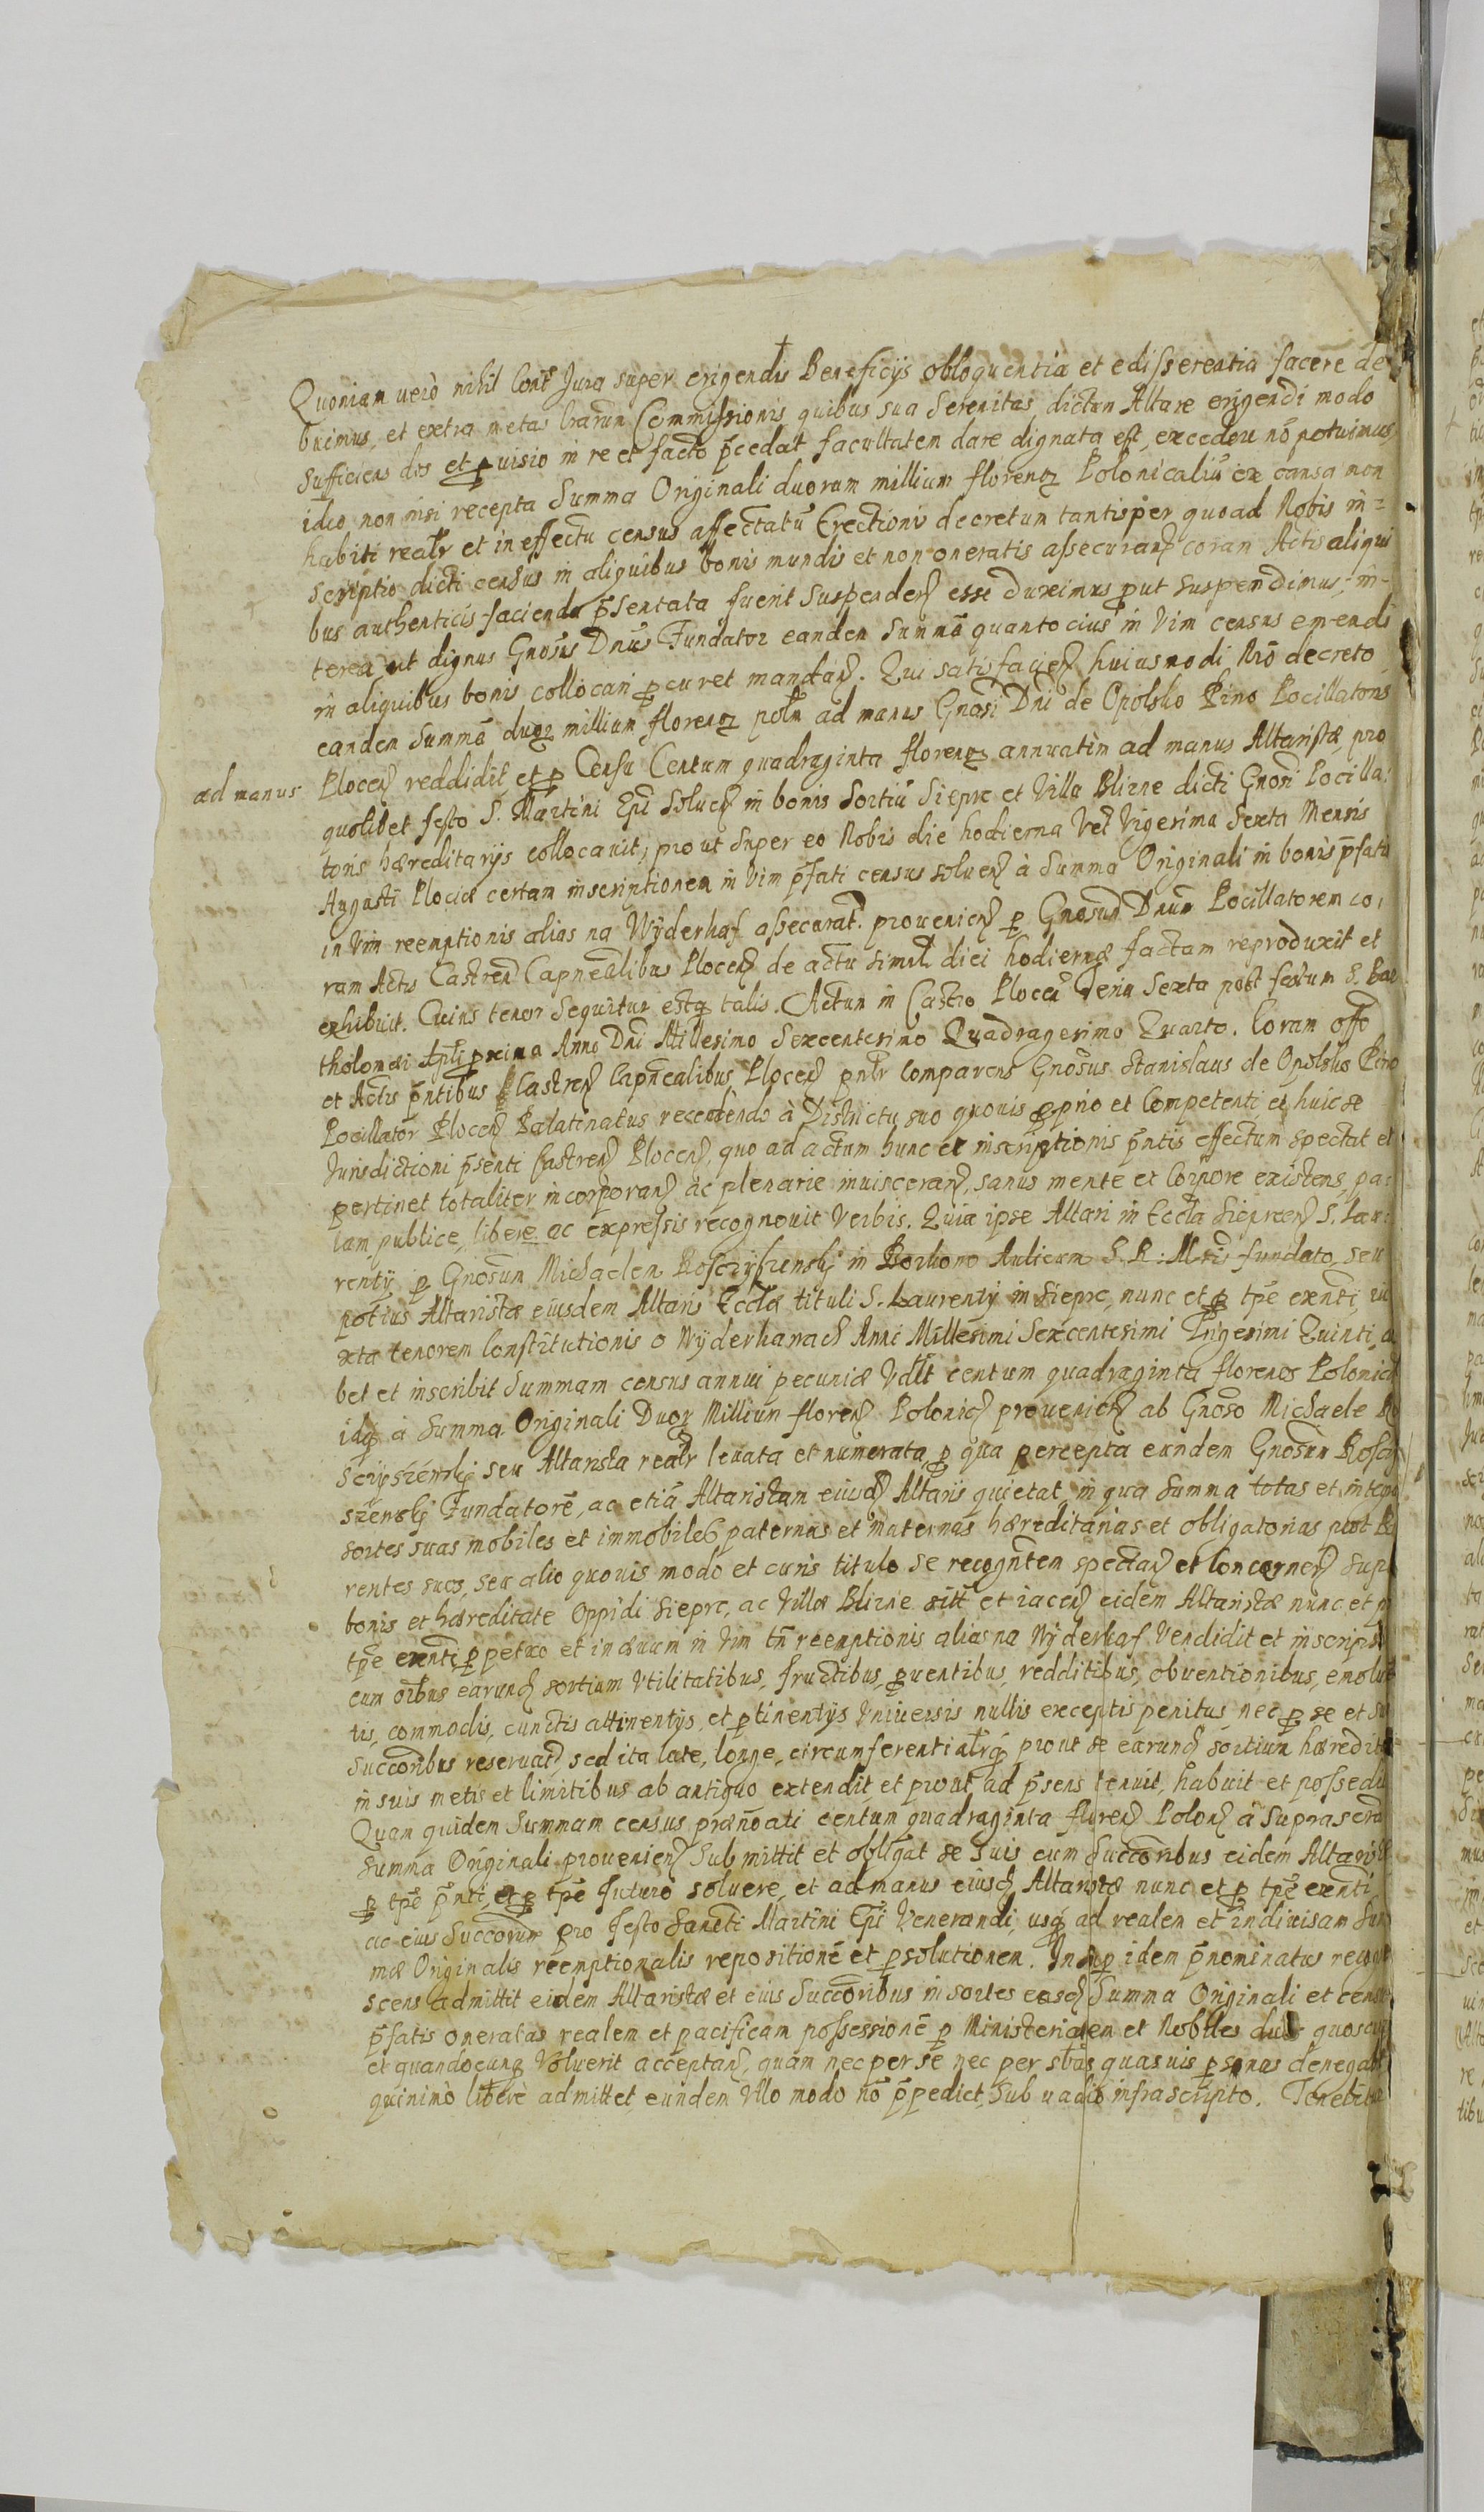 Quoniam verò nihil Cont͠ Jura super erigendis Beneficijs obloquentia et edisserentia facere de
buimus, et extra metas l͠rarum Commissionis quibus sua Serenitas dictum Altare erigendi modo
sufficiens dos et ꝓuisio in re et facto p͠cedat facultatem dare dignata est, excedere nō potuimus
ideo non nisi recepta Summa Originali duorum millium florenoꝝ Polonicaliū ex causa non
habiti realr͠ et in effectu census affectatū Erectionis decretum tantisper quoad Nobis in=
scriptio dicti census in aliquibus bonis mundis et non oneratis assecuran͠ coram Actis aliqui
bus authenticis facienda p͠sentata fuerit suspenden͠ esse duximus ꝓut suspendimus, in-
terea ut dignus Gn͠osus Dn͠us Fundator eandem Summā quanto cius in Vim census emendi
in aliquibus bonis collocari ꝓcuret mandan͠. Qui satisfacien͠ huiusmodi Nr͠o decreto
eandem Summā duoꝝ millium florenoꝝ pol͠n ad manus Gn͠osi Dn͠i de Opolsko Pino Pocillatoris
ad manus
Plocen͠ reddidit, et ꝓ Censu Centum quadraginta florenoꝝ annuatim ad manus Altaristæ, pro
quolibet festo S. Martini Ep͠i soluen͠ in bonis Sortiū Sieprc et Villa Blizne dicti Gn͠osi Pocilla:
toris hæreditarijs collocavit; prout super eo Nobis die hodierna Vet͠ Vigesima Sexta Mensis
Augusti Plociæ certam inscriptionem in Vim p͠fati census soluen͠ à Summa Originali in bonis p͠fatis
in Vim reemptionis alias na Wyderkaf assecurat͠. prouenien͠ ꝑ Gn͠osum Dn͠um Pocillatorem co,
ram Actis Castren͠ Capn͠ealibus Plocen͠ de actu simili diei hodiernæ factam reproduxit et
exhibuit. Cuius tenor sequitur estqꝫ talis. Actum in Castro Plocen͠ Feria Sexta post festum S. Bar
tholomæi Apl͠i ꝓxima Anno Dn͠i Millesimo Sexcentesimo Quadragesimo Quarto. Coram off͠o
et Actis p͠ntibus Castren͠ Capn͠ealibus Plocen͠ pn͠tr comparens Gn͠osus Stanislaus de Opolsko Pino
Pocillator Plocen͠ Palatinatus recedendo à Districtu suo quouis ꝓprio et Competenti et huic se
Jurisdictioni p͠senti Castren͠ Plocen͠, quo ad actum hunc et inscriptionis p͠ntis effectum spectat et
pertinet totaliter incorporan͠ ac plenarie inuisceran͠, sanus mente et Corpore existens, pa:
lam publice, libere ac expressis recognouit Verbis. Quia ipse Altari in Eccl͠a Sieprcen͠ S. Lau:
rentij ꝑ Gn͠osum Michaelem Rosczyszenskj in Aulicum S. R: M͠tis fundato, seu
potius Altaristæ eiusdem Altaris Eccl͠æ tituli S. Laurentij in Sieprc, nunc et ꝓ tp͠e exn͠ti, iu
xta tenorem Constitutionis o Wyderkanach Anni Millesimi Sexcentesimi Trigesimi Quinti,
bet et inscribit Summam census annui pecuniæ Vdl͠t centum quadraginta florenos Polonic
idqꝫ à Summa Originali Duoꝝ Millium floren͠ Polonic͠ prouenien͠ ab Gn͠oso Michaele Ro
sczyszenskj seu Altarista realr͠ leuata et numerata, ꝓ qua percepta eundem Gn͠osum Rosczy
szenskj Fundatorē, ac etiā Altaristam eiusd͠ Altaris quietat, in qua Summa totas et integras
sortes suas mobiles et immobiles paternas et maternas hæreditarias et obligatorias
rentes suos, seu alio quouis modo et curis titulo se recogn͠tem spectan͠ et concernen͠ super
bonis et hæreditate Oppidi Sieprc, ac Villæ Blizne sitt͠ et iacen͠ eidem Altaristæ nunc et p
tp͠e exn͠ti ꝑpetuo et in æuum in Vim tn͠ reemptionis alias na Wyderkaf Vendidit et inscripsit
cum oībus earund͠ sortium Vtilitatibus, fructibus, ꝓuentibus, redditibus, obuentionibus, emolum
tis, commodis, cunctis attinentijs, et ꝑtinentijs Vniuersis nullis exceptis penitus, nec ꝓ se et suis
Succoribus reseruat͠, sed ita late, longe, circumferentialr͠qꝫ prout se earund͠ sortium hæredit
in suis metis et limitibus ab antiquo extendit, et prout ad p͠sens tenuit, habuit et possedit
Quam quidem Summam census prænoāti centum quadraginta floren͠ Polon͠ à suprascr
Summa Originali prouenien͠ submittit et obligat se suis cum Succoribus eidem Altarist
ꝓ tp͠e p͠nti, et ꝓ tp͠e futuro soluere, et ad manus eiusd͠ Altaristæ nunc, et ꝓ tp͠e exn͠ti
ac eius Succorum pro festo Sancti Martini Ep͠i Venerandi, usqꝫ ad realem et indiuisam Sum
mæ Originalis reemptionalis repositionē et ꝑsolutionem. Insuꝑ idem p͠nominatus recogn
scens admittit eidem Altaristæ et eius Succoribus in sortes easd͠ Summa Originali et censu
p͠fatis oneratas realem et pacificam possessionē ꝑ Ministerialem et Nobiles duos quoscun
et quandocunqꝫ Voluerit acceptan͠, quam nec per se nec per sb͠tas quasuis ꝑsonas denegab
quinimò libere admittet eundem Vllo modo nō p͠pediet, sub uadio infrascripto. Tenebitur